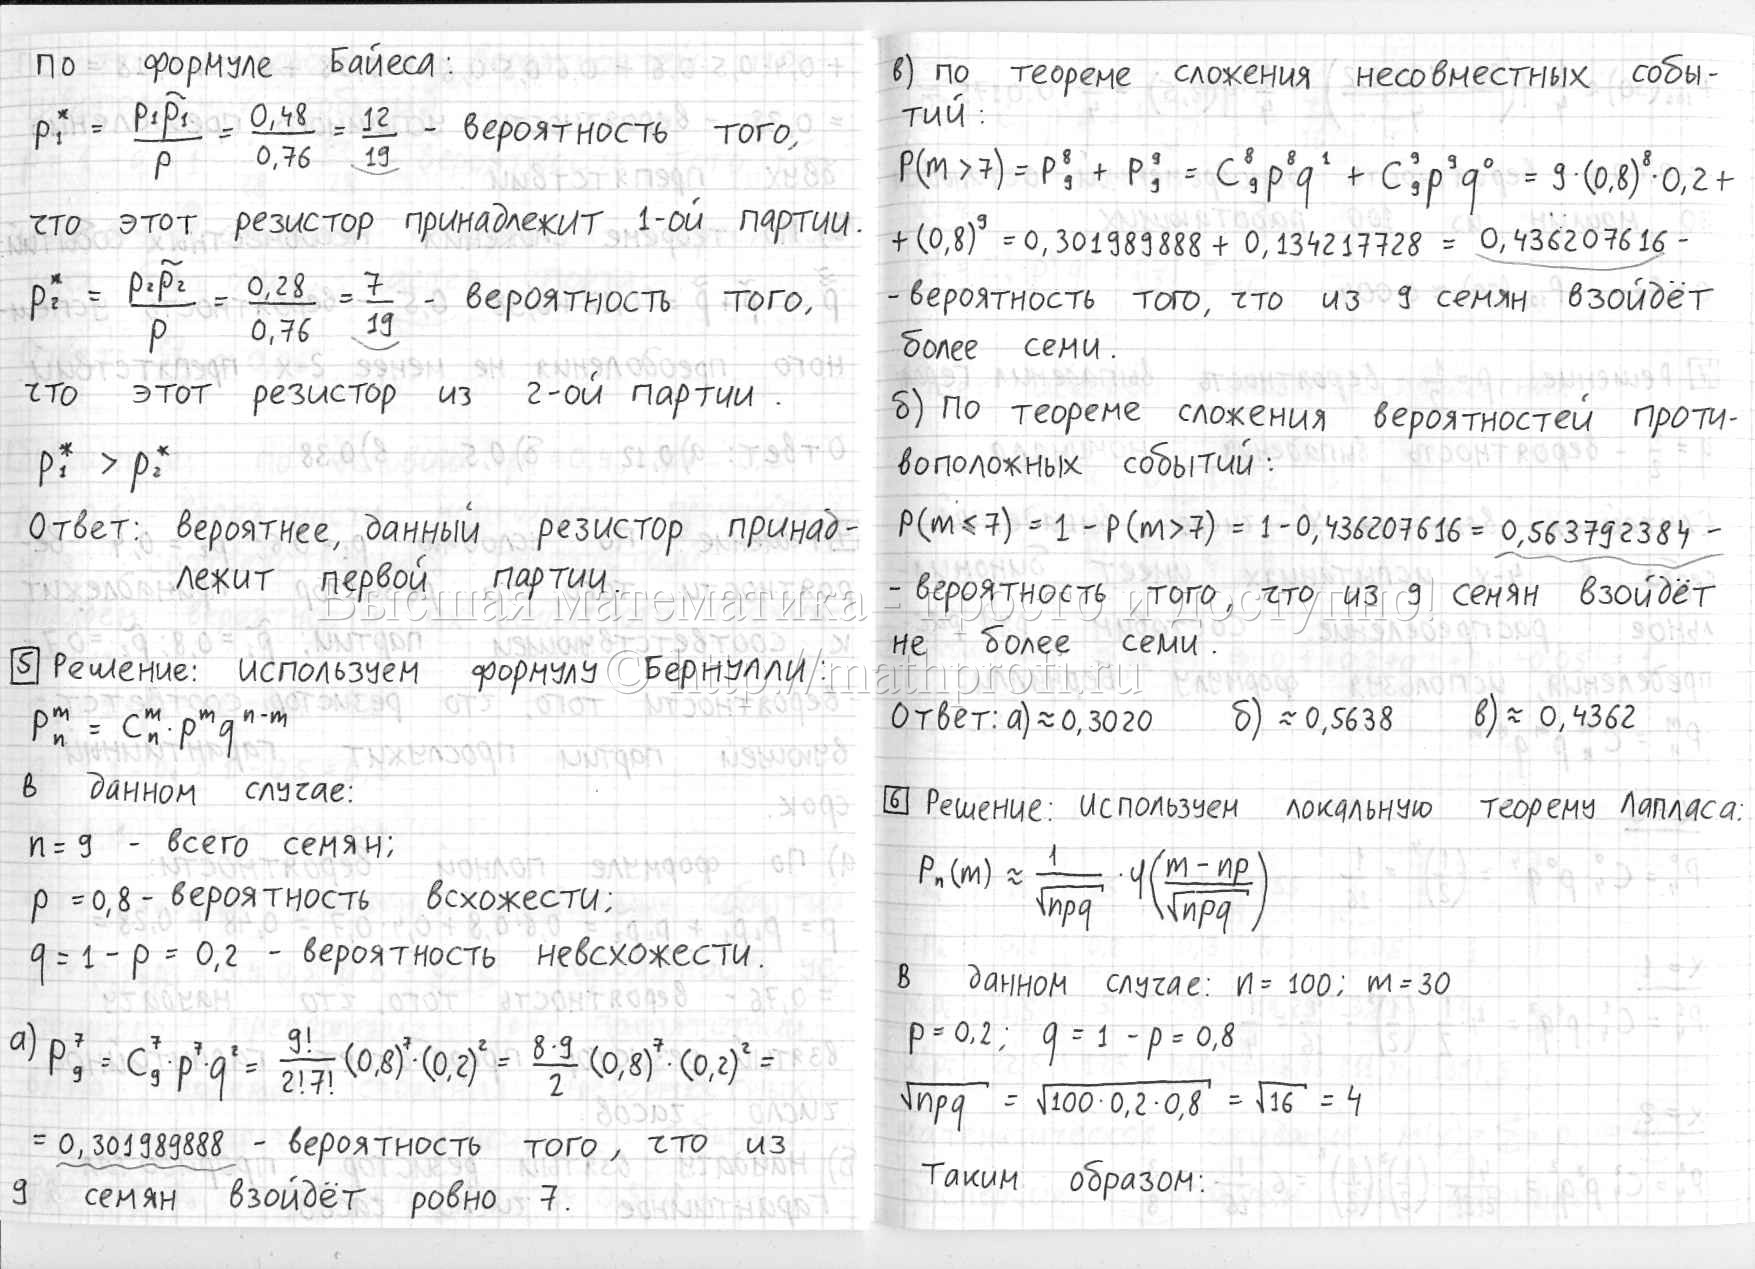 По формуле Байеса:
p₁* = p₁p̃₁/p = 0,48/0,76 = 12/19 - вероятность того,
что этот резистор принадлежит 1-ой партии.
p₂* = p₂p̃₂/p = 0,28/0,76 = 7/19 - вероятность того,
что этот резистор из 2-ой партии.
p₁* > p₂*
Ответ: вероятнее, данный резистор принад-
лежит первой партии.
5 Решение: используем формулу Бернулли:
Pₙᵐ = Cₙᵐ · pᵐ qⁿ⁻ᵐ
В данном случае:
n = 9 - всего семян;
p = 0,8 - вероятность всхожести;
q = 1 - p = 0,2 - вероятность невсхожести.
а) P₉⁷ = C₉⁷ · p⁷ · q² = 9!/2!7! (0,8)⁷ · (0,2)² = 8·9/2 (0,8)⁷ · (0,2)² =
= 0,301989888 - вероятность того, что из
9 семян взойдёт ровно 7.
в) по теореме сложения несовместных собы-
тий:
P(m > 7) = P₉⁸ + P₉⁹ = C₉⁸ p⁸ q¹ + C₉⁹ p⁹ q⁰ = 9 · (0,8)⁸ · 0,2 +
+ (0,8)⁹ = 0,301989888 + 0,134217728 = 0,436207616 -
- вероятность того, что из 9 семян взойдёт
более семи.
б) По теореме сложения вероятностей проти-
воположных событий:
P(m ≤ 7) = 1 - P(m > 7) = 1 - 0,436207616 = 0,563792384 -
- вероятность того, что из 9 семян взойдёт
не более семи.
Ответ: а) ≈ 0,3020 б) ≈ 0,5638 в) ≈ 0,4362
6 Решение: Используем локальную теорему Лапласа:
Pₙ(m) ≈ 1/√npq · φ((m - np)/√npq)
В данном случае: n = 100; m = 30
p = 0,2; q = 1 - p = 0,8
√npq = √100 · 0,2 · 0,8 = √16 = 4
Таким образом:
Высшая математика - просто и доступно!
© http://mathprofi.ru